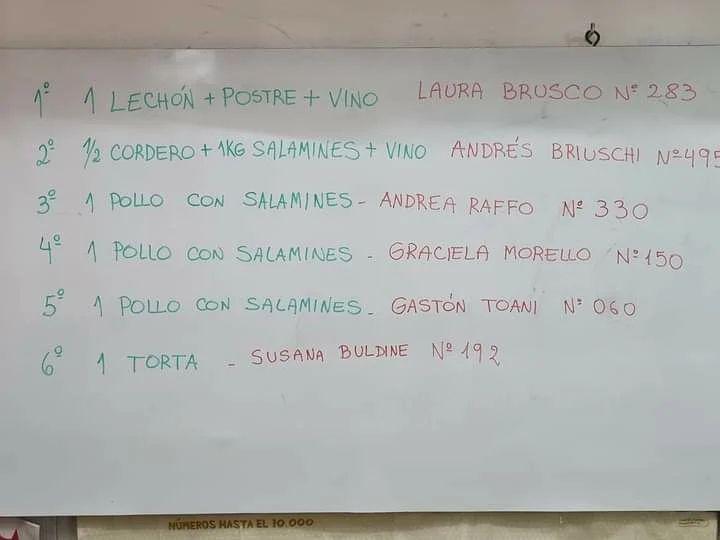 1º 1 LECHÓN + POSTRE + VINO LAURA BRUSCO Nº 283
2º 1/2 CORDERO + 1KG SALAMINES + VINO ANDRÉS BRIUSCHI Nº 495
3º 1 POLLO CON SALAMINES - ANDREA RAFFO Nº 330
4º 1 POLLO CON SALAMINES - GRACIELA MORELLO Nº 150
5º 1 POLLO CON SALAMINES - GASTÓN TOANI Nº 060
6º 1 TORTA - SUSANA BULDINE Nº 192
NÚMEROS HASTA EL 10.000